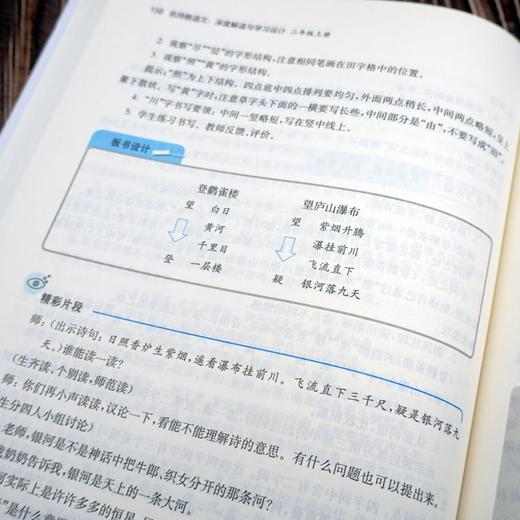 156 名师教语文：深度解读与学习设计 二年级上册
2. 观察“尽”“层”的字形结构，注意相同笔画在田字格中的位置。
3. 观察“照”“黄”的字形结构。
提示：“照”为上下结构。四点底中四点排列要均匀，外面两点稍长，中间两点略短，呈上
董下散状。写“黄”字时，注意草字头下面的一横要写长些，中间部分是“由”，不要写成“田”。
4. “川”字书写要领：中间一竖略短，写在竖中线上。
5. 学生练习书写，教师反馈、评价。
板书设计
登鹳雀楼 望庐山瀑布
望 白日 望 紫烟升腾
黄河 瀑挂前川
千里目 飞流直下
登 一层楼 疑 银河落九天
精彩片段
师：（出示诗句：日照香炉生紫烟，遥看瀑布挂前川。飞流直下三千尺，疑是银河落九
天。）谁能读一读？
（生齐读、个别读，师范读）
师：你们再小声读读，议论一下，看能不能理解诗的意思。有什么问题也可以提出来。
生分四人小组讨论）
老师，银河是不是神话中把牛郎、织女分开的那条河？
奶奶告诉我，银河是天上的一条大河。
河实际上是许许多多的恒星
”是什么意